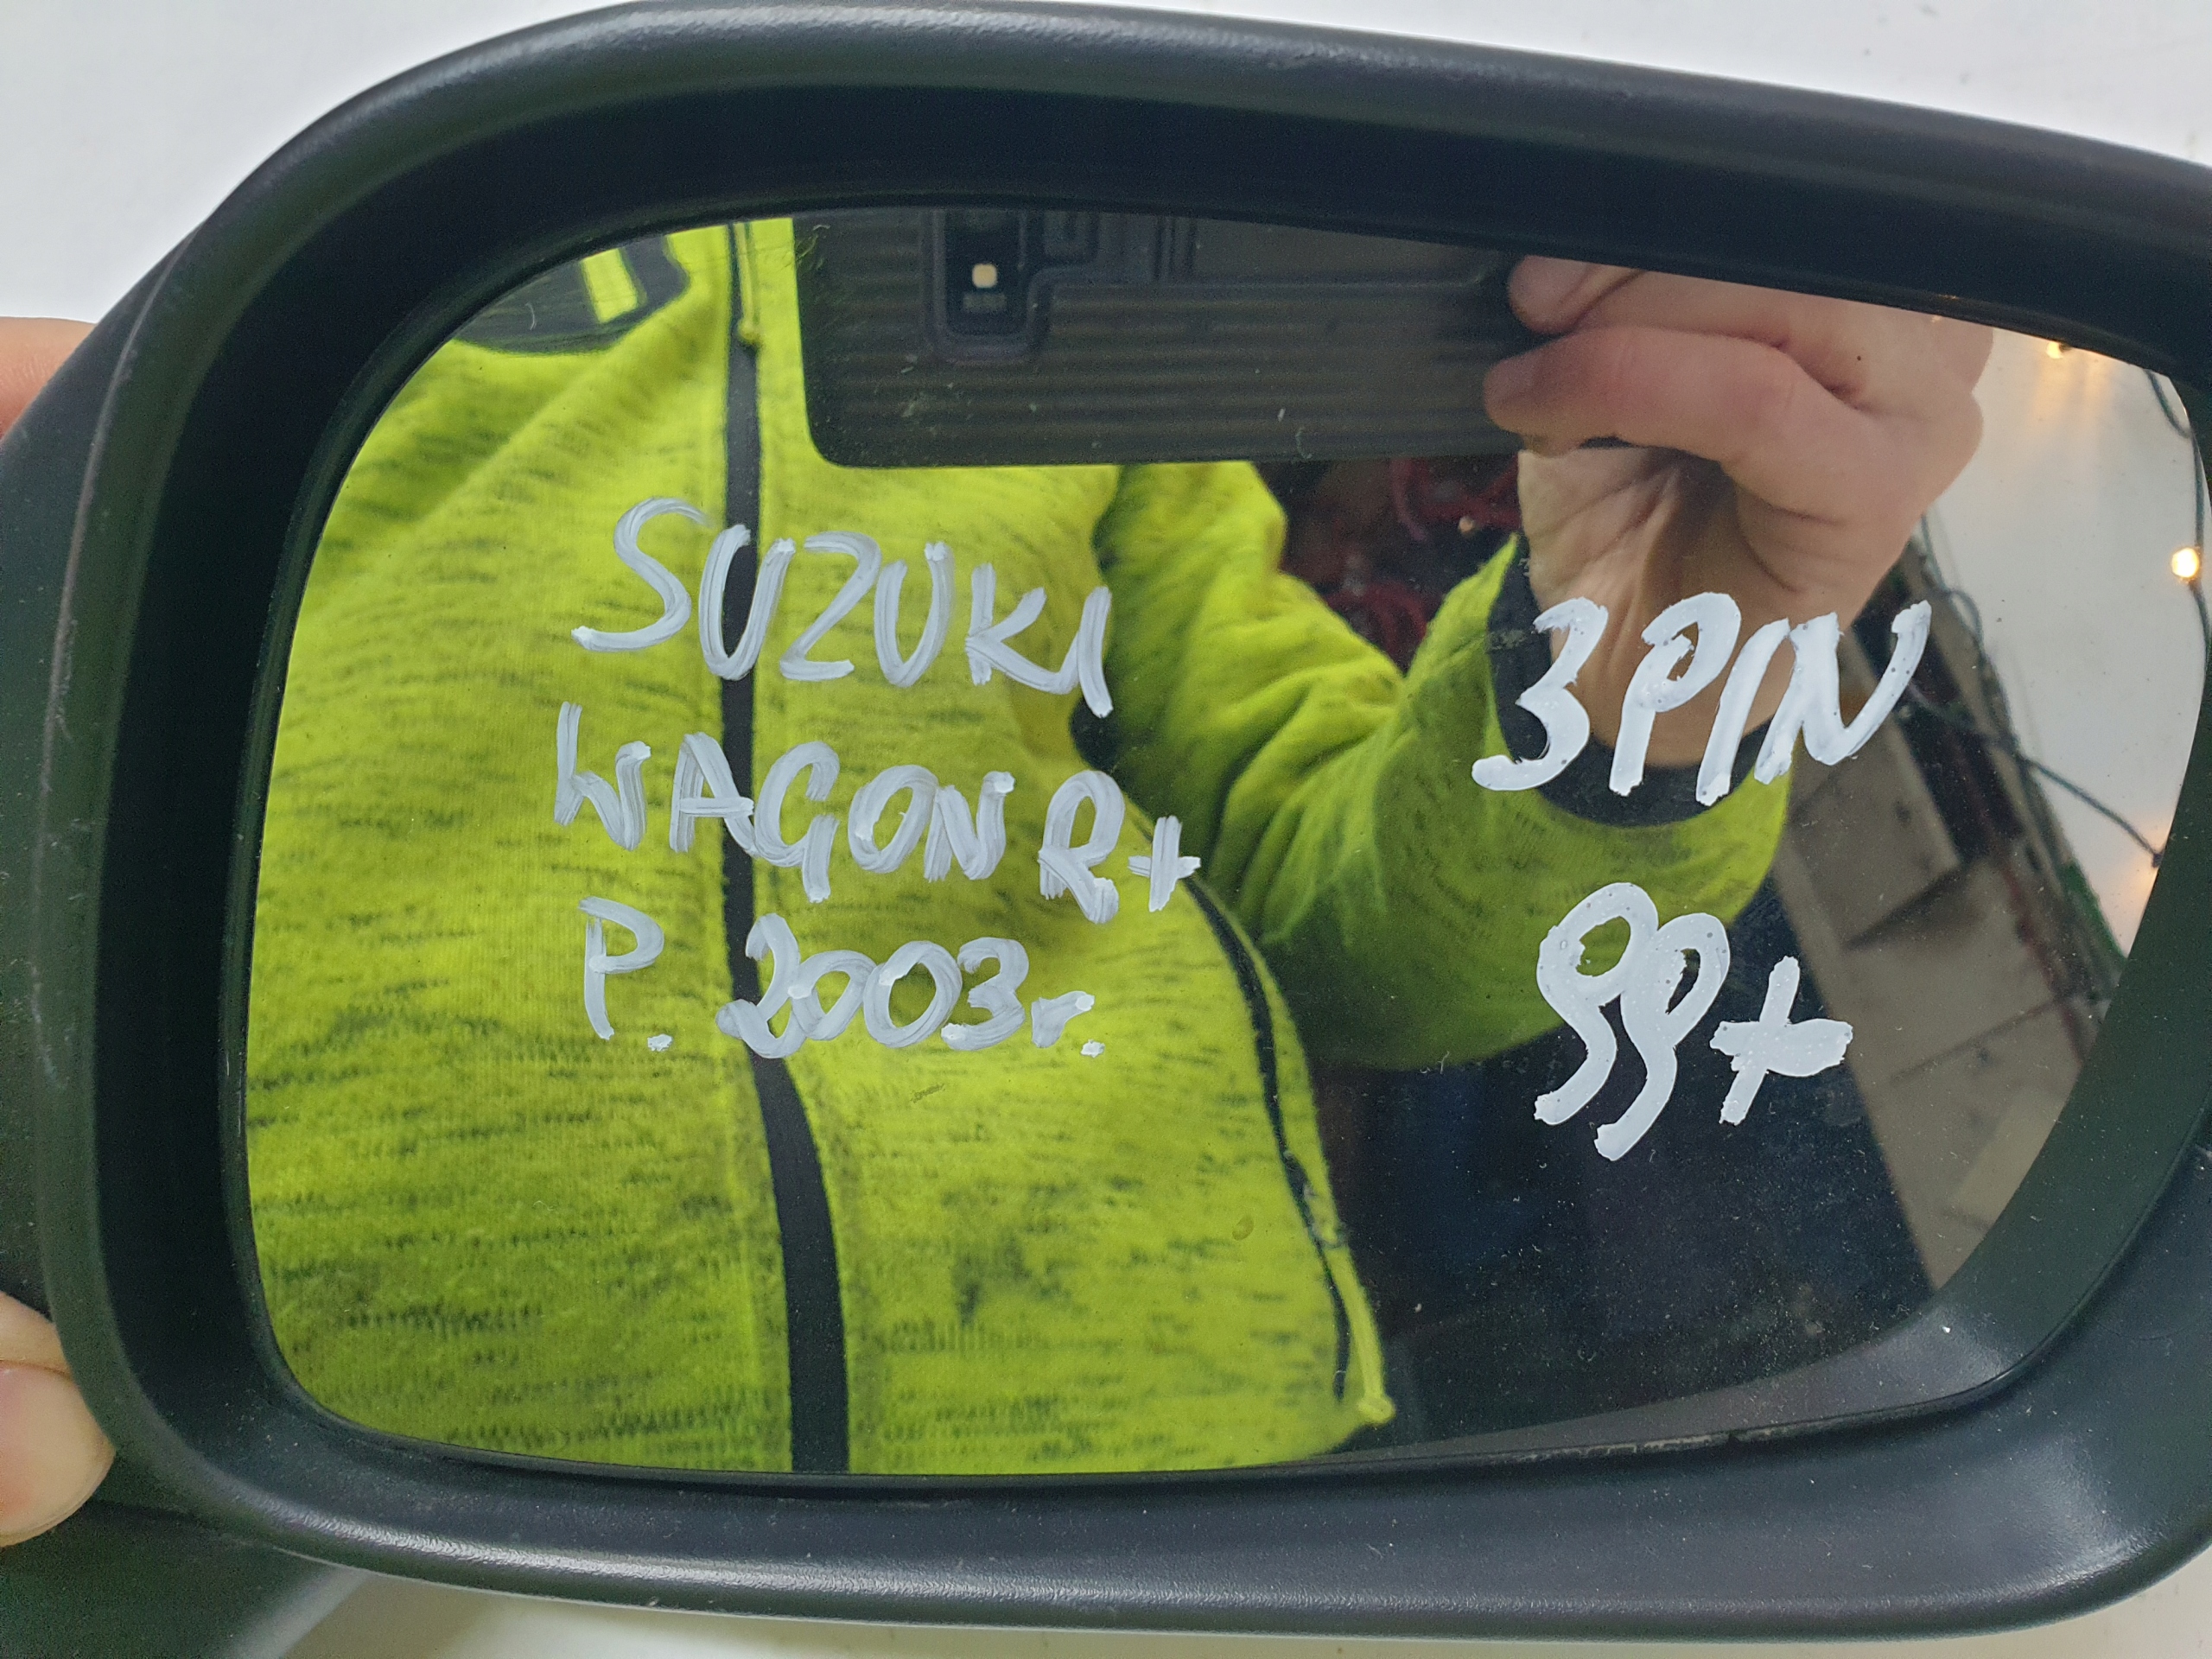 SUZUKI
WAGON R+
P. 2003r.
3PIN
99+